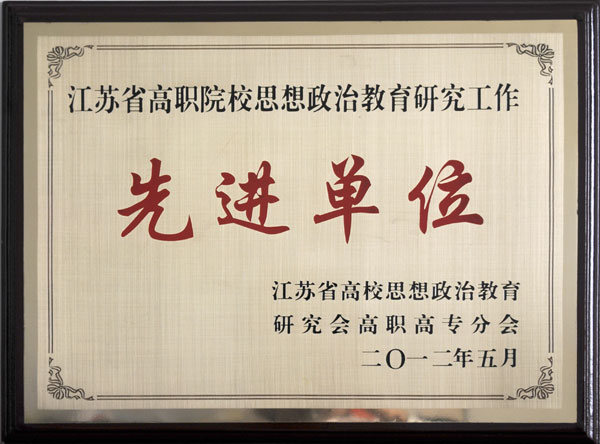 江苏省高职院校思想政治教育研究工作
先进单位
江苏省高校思想政治教育
研究会高职高专分会
二〇一二年五月